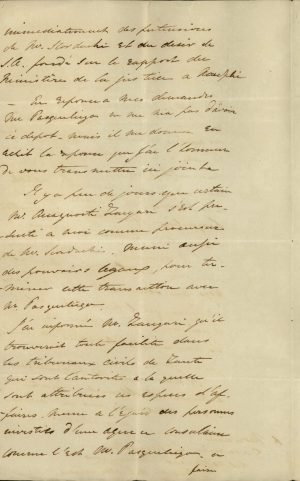 immédiatement des prétentions
de Mr. et du désir de
S.A. fondé sur le rapport du
Ministère de la justice a
— En réponse a mes demandes
Mr Pasqueligo ne nie pas d'avoir
ce dépot, mais il me donne en
écrit la reponse que j'ai l'honneur
de vous transmettre ci joint
Il y a peu de jours que certain
Mr. s'est pré-
senté a moi comme procureur
de Mr. muni aussi
des pouvoirs legaux, pour ter-
miner cette transaction avec
Mr Pasqueligo.
J'ai informé Mr. qu'il
trouverait toute facilité dans
les tribunaux civils de Zante
qui sont l'autorité a la quelle
sont attribuées ces especes d'af-
faires, meme a l'égard des personnes
investies d'une agence consulaire
comme l'est Mr. Pasqueligo, a
faire